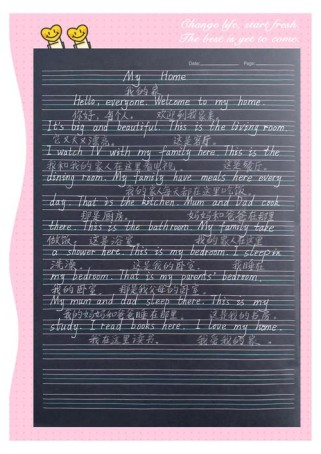 Change life, start fresh
The best is yet to come
Date: Page:
My Home
我的家
Hello, everyone. Welcome to my home.
你好，每个人。 欢迎到我家来。
It's big and beautiful. This is the living room.
它又大又漂亮。 这是客厅。
I watch TV with my family here. This is the
我和我的家人在这里看电视。 这是餐厅。
dining room. My family have meals here every
我的家人每天都在这里吃饭。
day. That is the kitchen. Mum and Dad cook
那是厨房。 妈妈和爸爸在那里
there. This is the bathroom. My family take
做饭。 这是浴室。 我的家人在这里
a shower here. This is my bedroom. I sleep in
洗澡。 这是我的卧室。 我睡在
my bedroom. That is my parents' bedroom.
我的卧室。 那是我父母的卧室。
My mum and dad sleep there. This is my
我的妈妈和爸爸睡在那里。 这是我的书房。
study. I read books here. I love my home.
我在这里读书。 我爱我的家。